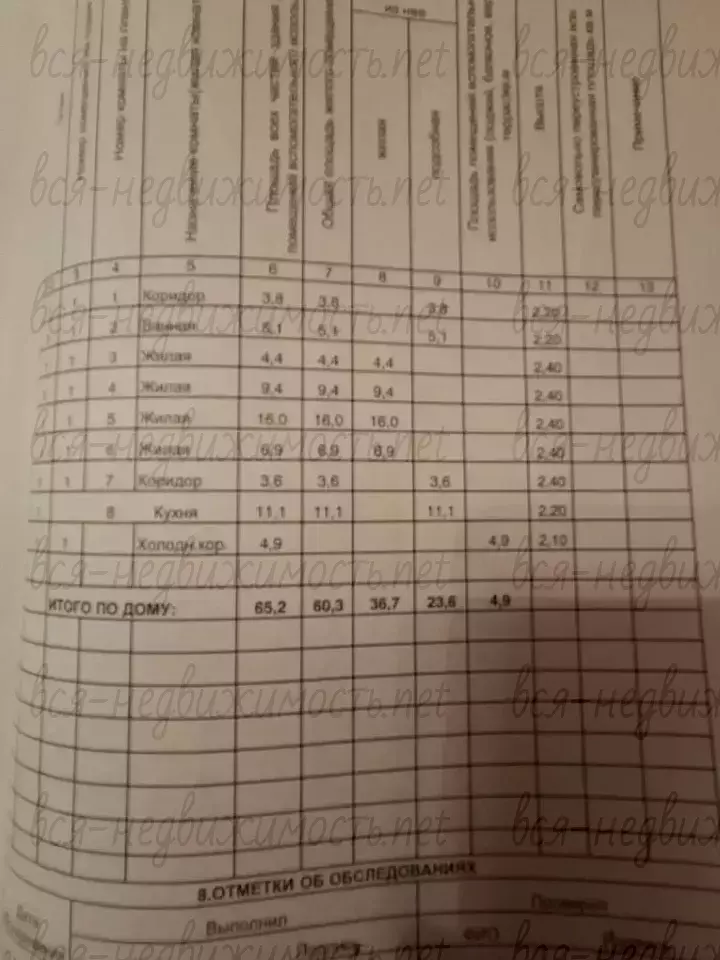 из нее
Номер комнаты на плане
Назначение комнаты
Площадь всех частей здания
помещений вспомогательного использ.
жилая
подсобная
Площадь помещений вспомогательн
использования (лоджий, балконов, вер
террас)кв.м
Высота
Самовольно переустроенная или
перепланированная площадь кв.м
Примечание
3 4 5 6 7 8 9 10 11 12 13
1 1 Коридор 3,8 3,8 3,8 2,20
1 1 2 Ванная 5,1 5,1 5,1 2,20
1 1 3 Жилая 4,4 4,4 4,4 2,40
1 1 4 Жилая 9,4 9,4 9,4 2,40
1 1 5 Жилая 16,0 16,0 16,0 2,40
1 1 6 Жилая 6,9 6,9 6,9 2,40
1 1 7 Коридор 3,6 3,6 3,6 2,40
1 8 Кухня 11,1 11,1 11,1 2,20
1 Холодн.кор. 4,9 4,9 2,10
ИТОГО ПО ДОМУ: 65,2 60,3 36,7 23,6 4,9
8.ОТМЕТКИ ОБ ОБСЛЕДОВАНИЯХ
Выполнил
Проверил
Дата
ФИО
вся-недвижимость.net